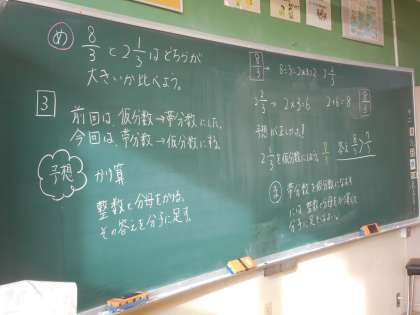 め 8/3 と 2 1/3 はどちらが
大きいか比べよう。
3
前回は仮分数→帯分数にした。
今回は、帯分数→仮分数にする。
予想 かけ算
整数と分母をかけ、
その答えを分子に足す
8/3 → 8÷3=2あまり2 2 2/3
2 2/3 → 2×3=6 2+6=8 8/3
2 1/3 を仮分数になおす
ま 帯分数を仮分数になおす
には、整数と分母をかけて
分子に足せばよい。